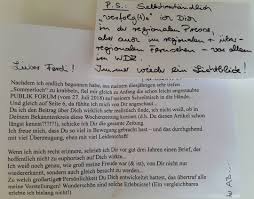 P.S. Selbstverständlich
"verfolg(t)e" ich Dich
in der regionalen Presse,
also auch im regionalen + über-
regionalen Fernsehen - vor allem
im WDR.
Immer wieder ein Lichtblick!
Lieber Ferdi!
Nachdem ich endlich begonnen habe, ins meinem diesjährigen sehr tiefen
"Sommerloch" zu krabbeln, fiel mir gleich zu Anfang die schon leicht angestaubte
PUBLIK FORUM (vom 27. Juli 2018) auf meinem Schreibtisch in die Hände.
Und gleich auf Seite 6, da fühlte ich mich in guter Gesellschaft.
Da ich den Beitrag über Dich wirklich sehr realistisch finde, nicht weiß, ob in
Deinem Bekanntenkreis diese Wochenzeitung kursiert (d.h. Du diesen Artikel schon
längst kennst?????), schicke ich Dir die gesamte Zeitung.
Ich freue mich, dass Du so viel in Bewegung gebracht hast - und das durchgehend
mit viel Überzeugung, eben mit viel Leidenschaft!
Wenn ich mich recht erinnere, schrieb ich Dir vor gut drei Jahren einen Brief, der
hoffentlich nicht zu euphorisch auf Dich wirkte.
Ich weiß noch genau, wie groß meine Freude war (& ist), von Dir nicht nur
wiederzukennst, sondern auch gleich besucht zu werden.
Zu welch großartiger Persönlichkeit Du Dich entwickelt hattest, das übertraf alle
meine Vorstellungen! Wunderschön sind solche Erlebnisse! (Ein vergleichbares
hatte ich nicht)